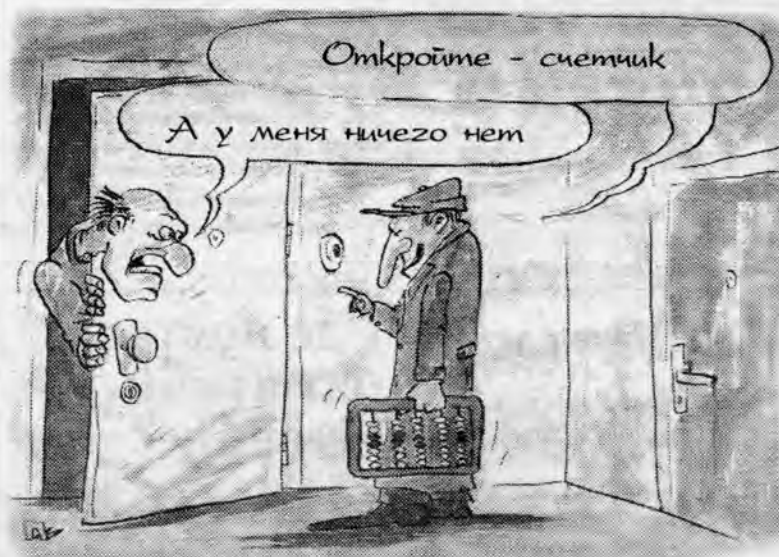 Откройте - счетчик
А у меня ничего нет